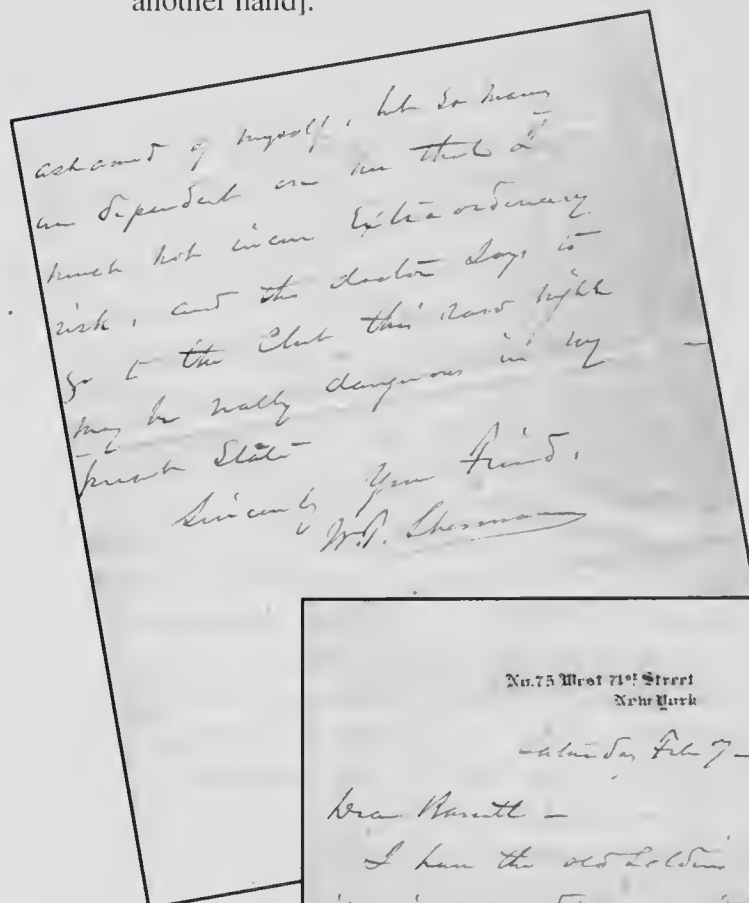 another hand].
ashamed of myself, but so many
are dependent on me that I
must not incur Extraordinary
risk, and the doctor says to
go to the Club this raw night
may be really dangerous in my
present State
Sincerely Your Friend,
W.T. Sherman
No. 75 West 71st Street
New York
Saturday Feb 7 —
Dear Barrett —
I have the old